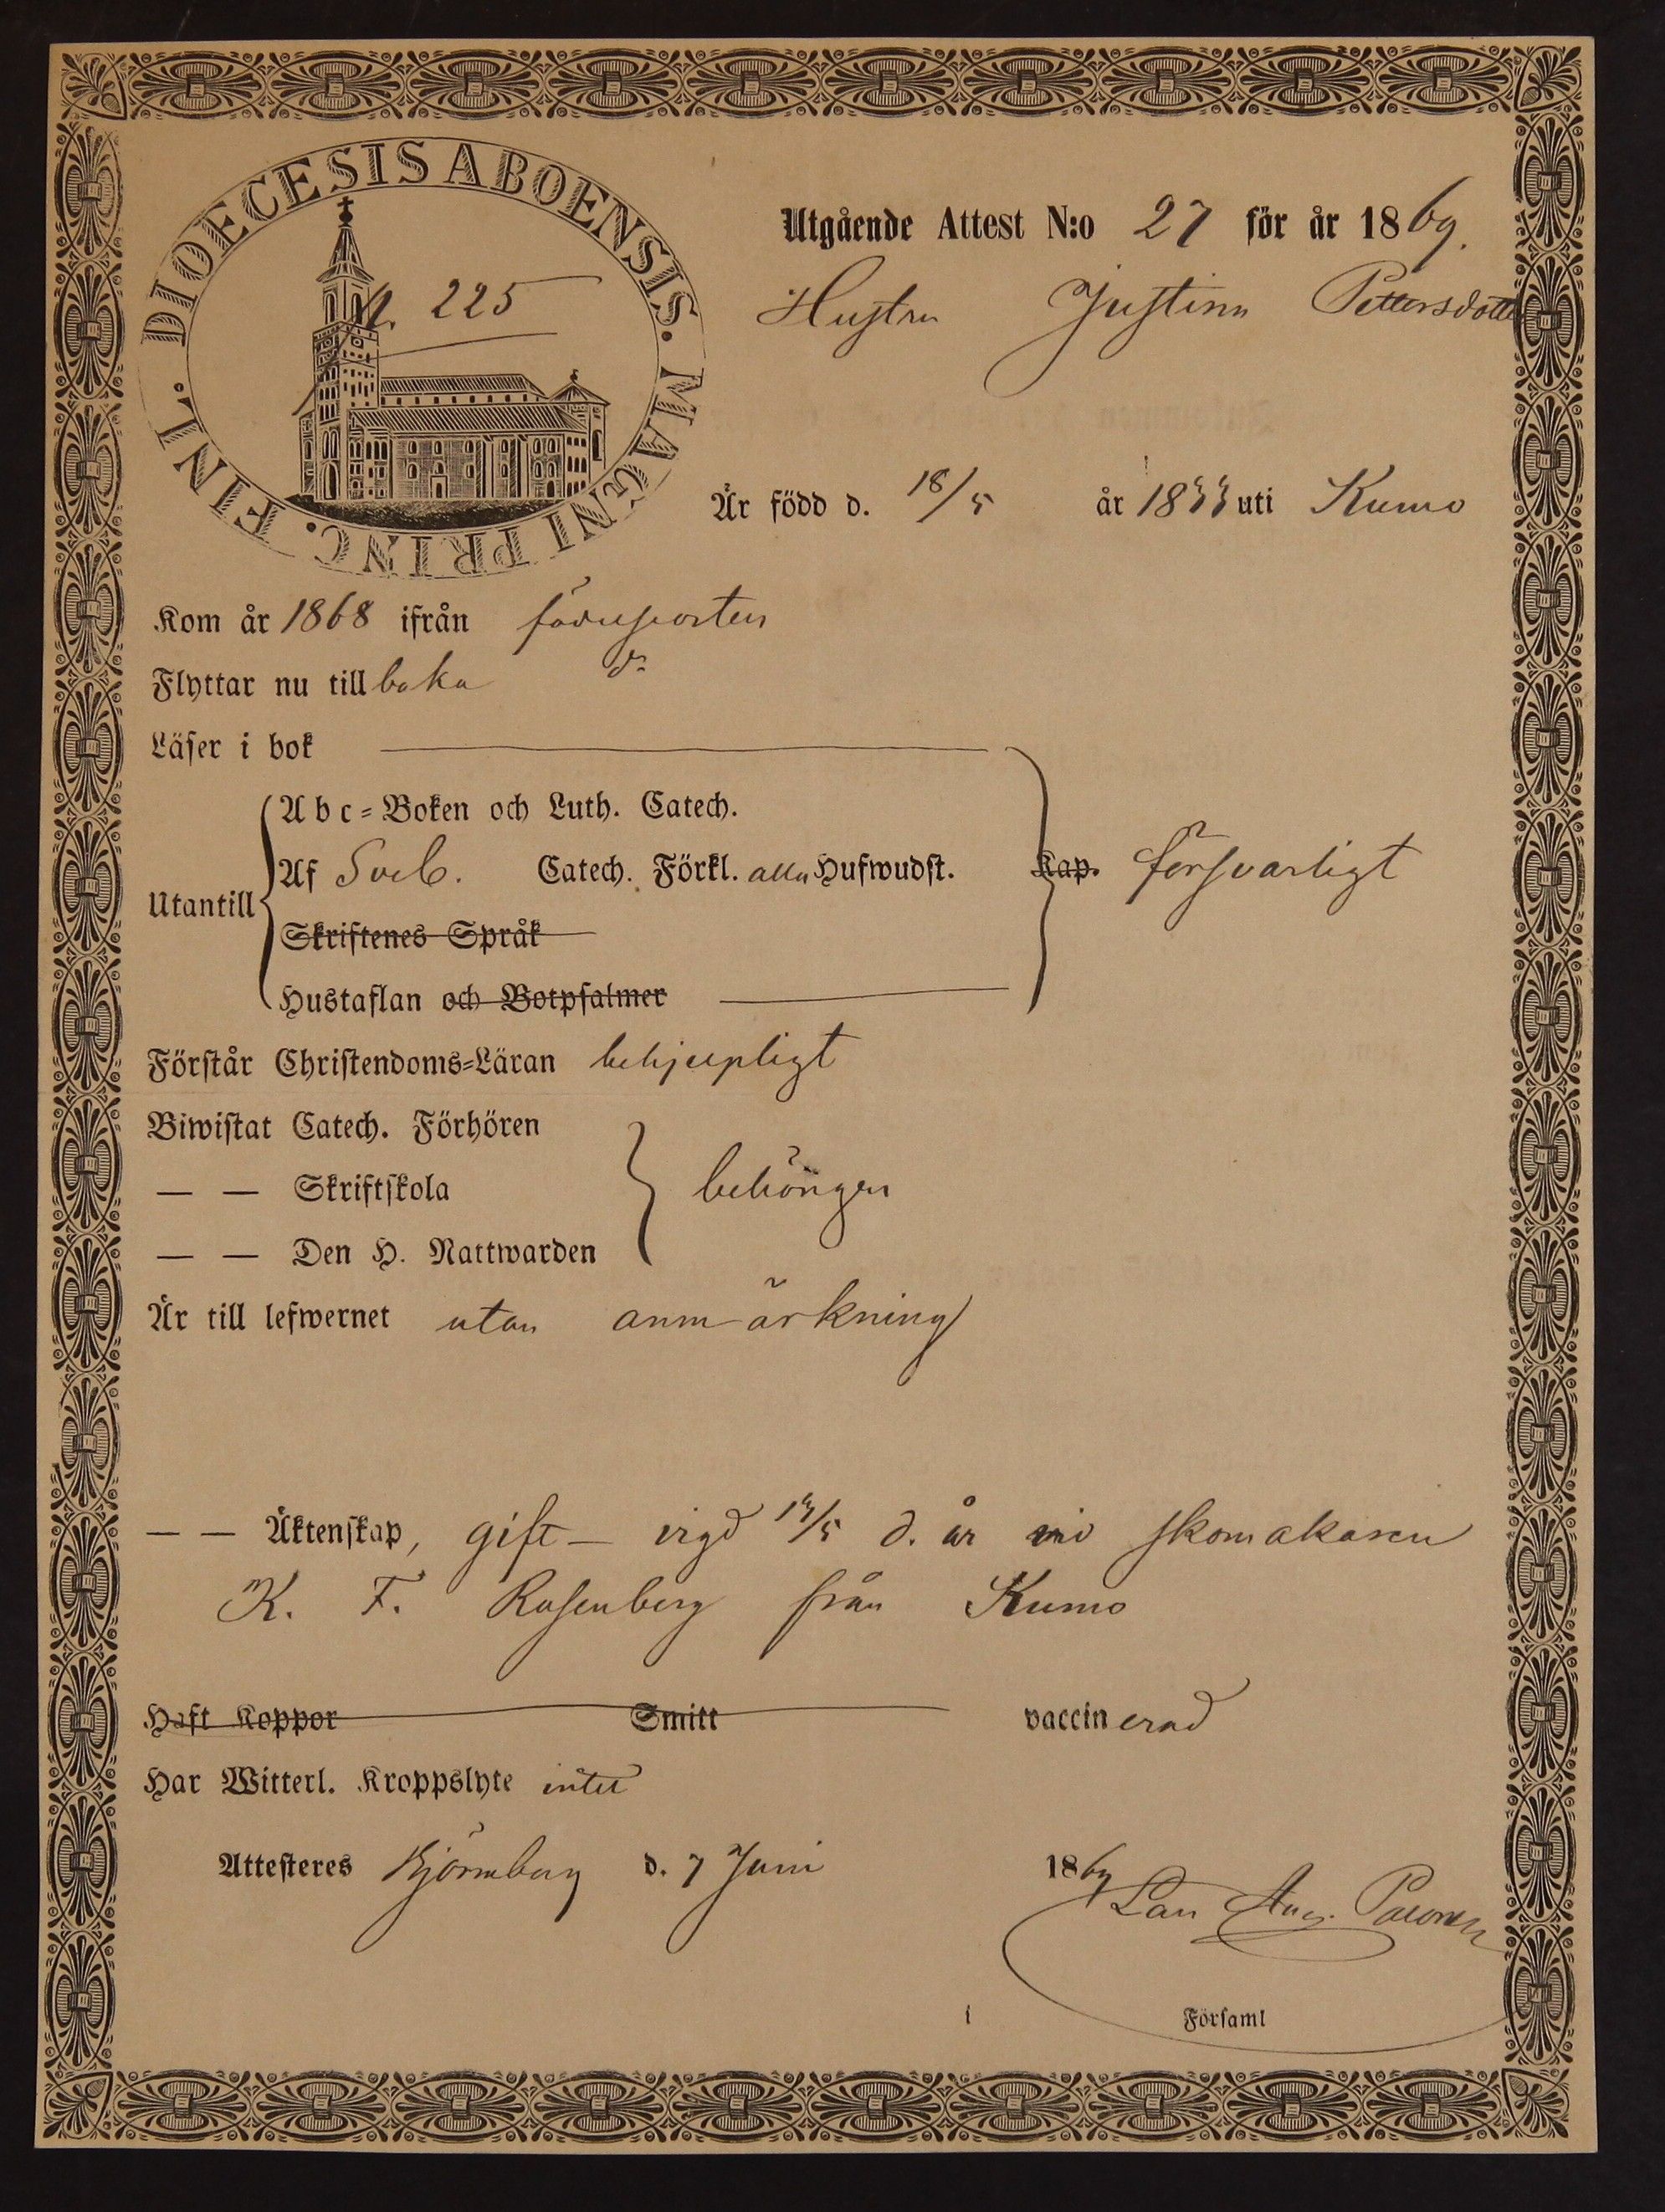 DIOECESIS ABOENSIS. MAGNI PRINC. FINL.
225
Utgående Attest N:o 27 för år 1869.
Hustru Justina Pettersdotter
Är född d. 18/5 år 1833 uti Kumo
Kom år 1868 ifrån födelseorten
Flyttar nu till baka do
Läser i bok
Abc=Boken och Luth. Catech.
Utantill Af Sveb. Catech. Förkl. alla Hufwudst. Kap. försvarligt
Skriftenes Språk
Hustaflan och Botpsalmer
Förstår Christendoms=Läran behjelpligt
Biwistat Catech. Förhören
— — Skriftskola behörigen
— — Den H. Nattwarden
Är till lefwernet utan anmärkning
— — Äktenskap, gift – vigd /5 d. år vid skomakaren
K. F. Rosenberg från Kumo
Haft Koppor Smitt vaccinerad
Har Witterl. Kroppslyte intet
Attesteres Björneborg d. 7 Juni 1869
Aug.
i Församl